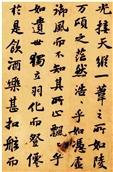 光接天縱一葦之所如陵
万頃之茫然浩〻乎如憑虛
御風而不知其所止飄〻乎
如遺世獨立羽化而登僊
於是飲酒樂甚扣舷而